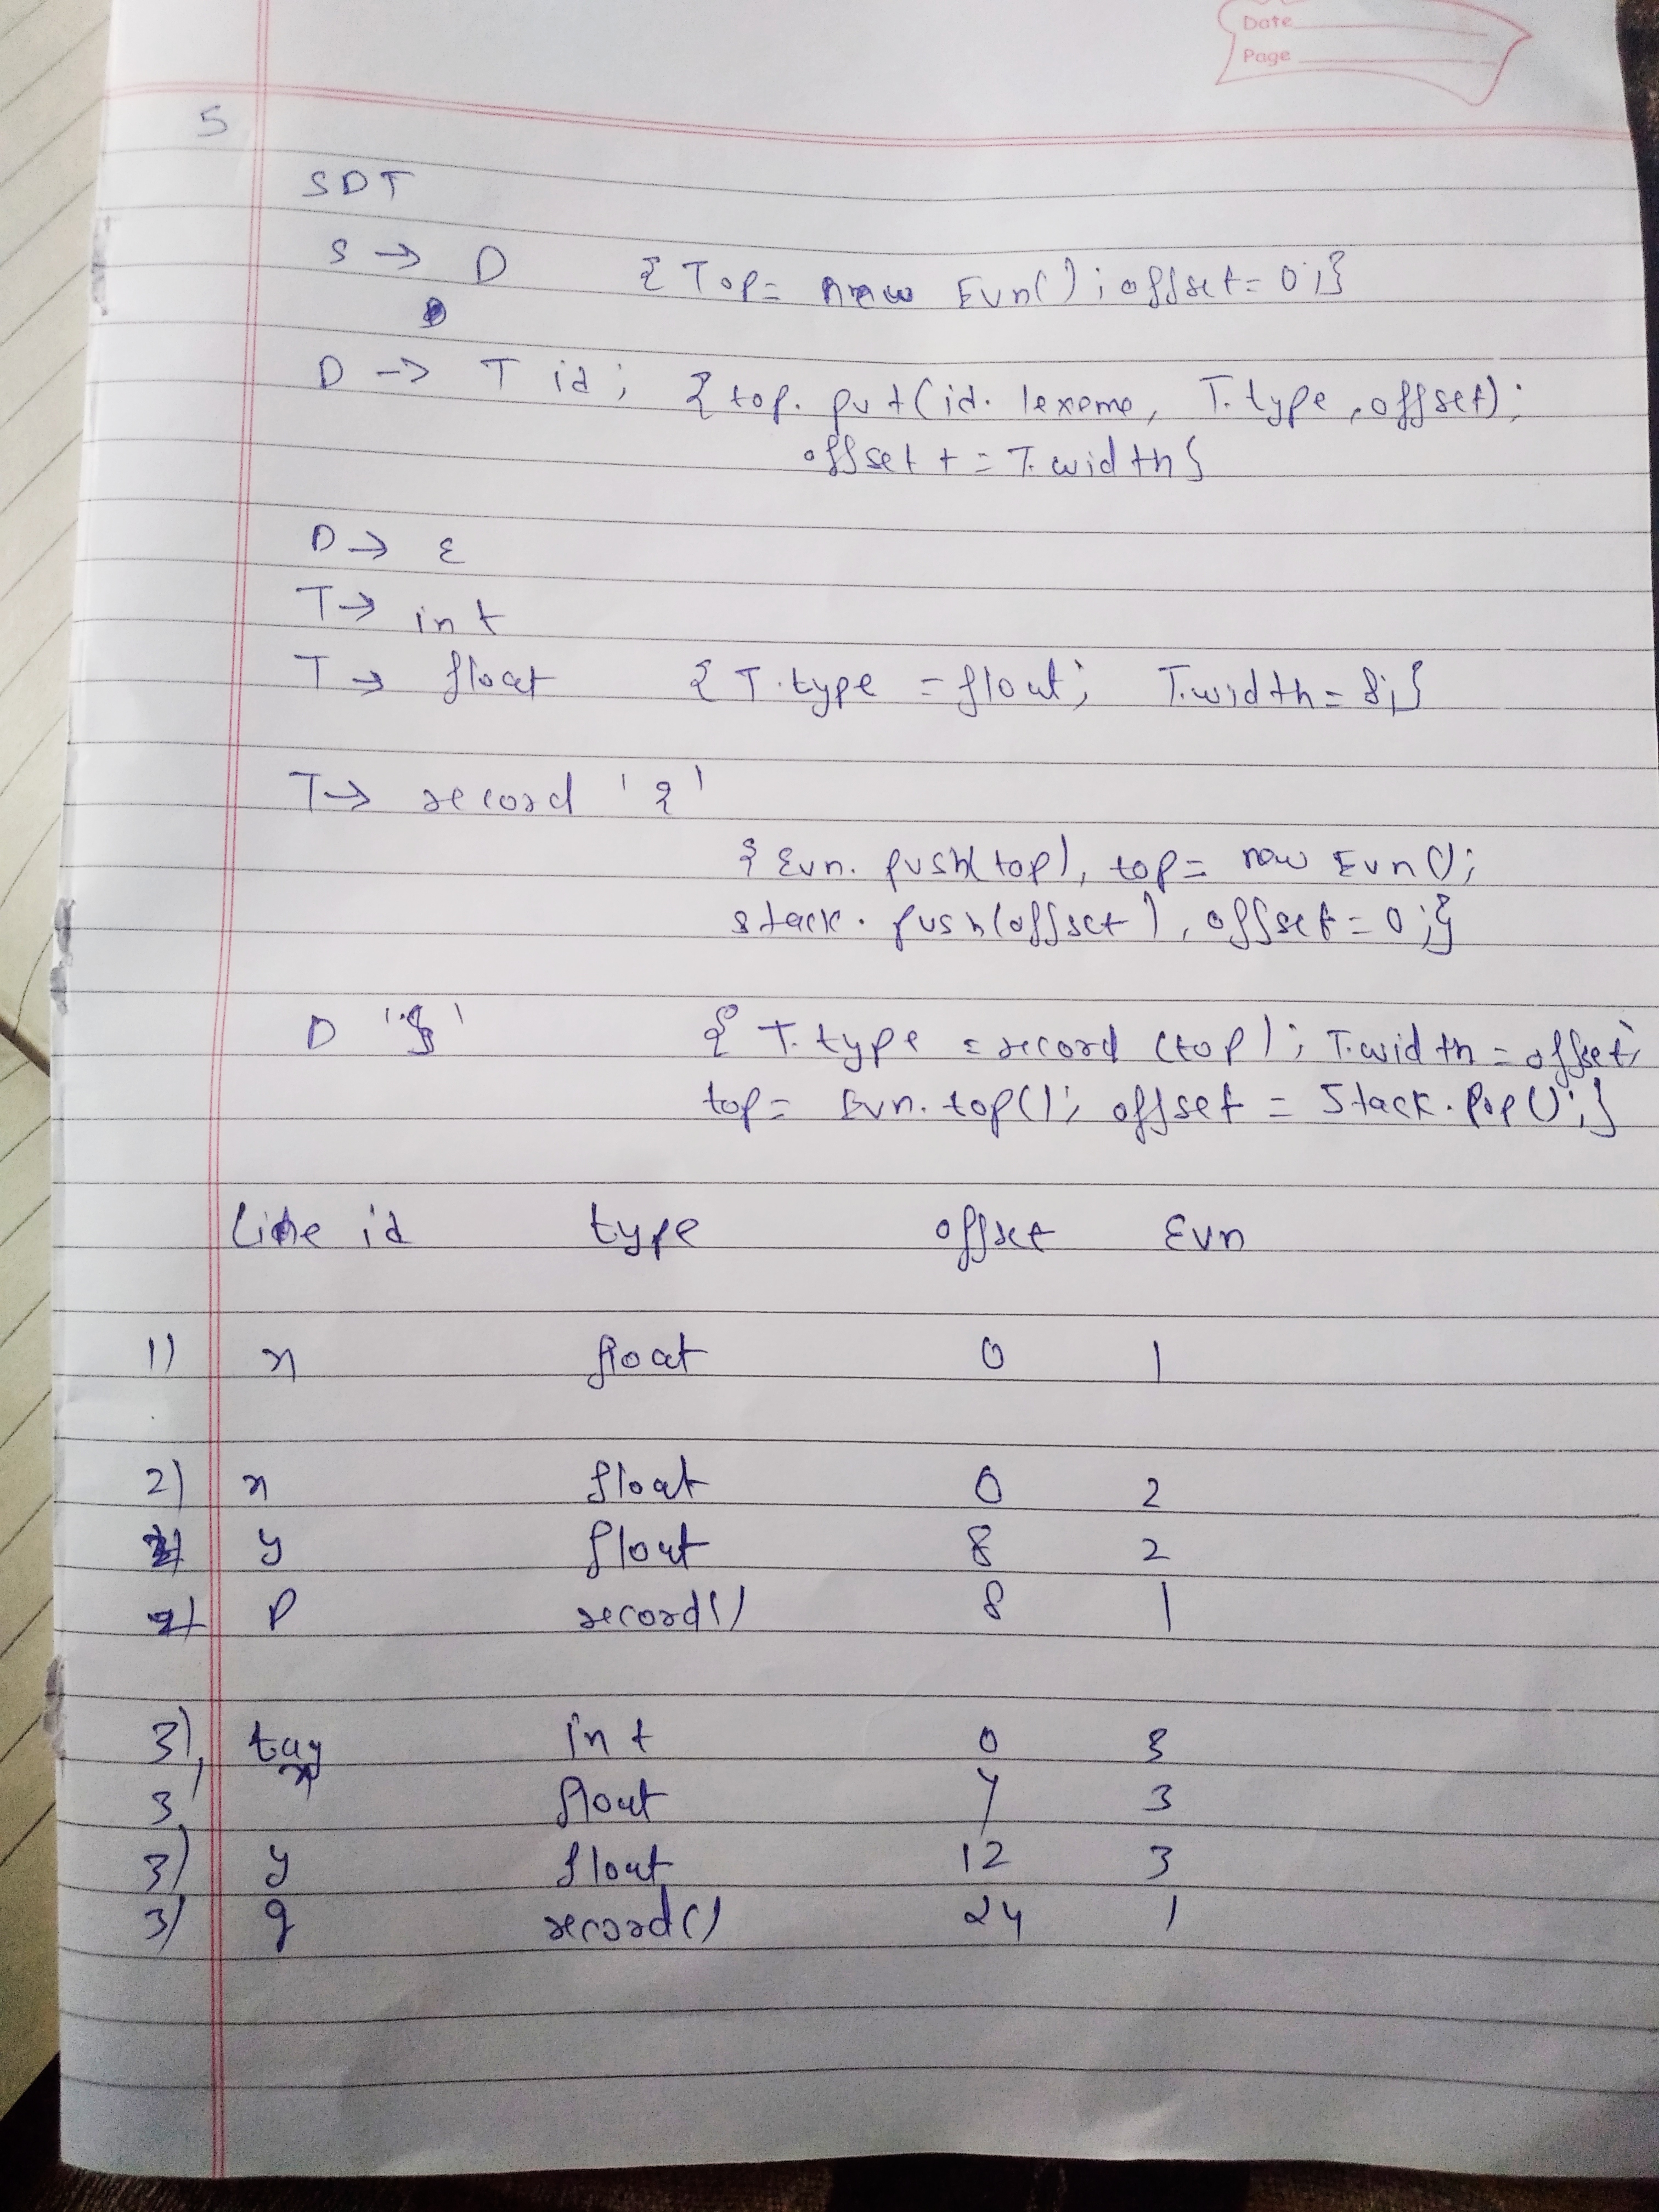 Date
Page
5
SDT
S → D { Top = new Evn(); offset = 0;}
D → T id; { top. put(id. lexeme, T.type, offset);
offset + = T.width}
D → ε
T → int
T → float { T.type = float; T.width = 8;}
T → record '{'
{ Evn. push(top), top = new Evn();
stack. push(offset), offset = 0;}
D '}' { T.type = record (top); T.width = offset;
top = Evn. top(); offset = Stack. Pop();}
Line id type offset Evn
1) x float 0 1
2) x float 0 2
2) y float 8 2
2) P record() 8 1
3) tag int 0 3
3 x float 4 3
3) y float 12 3
3) q record() 24 1